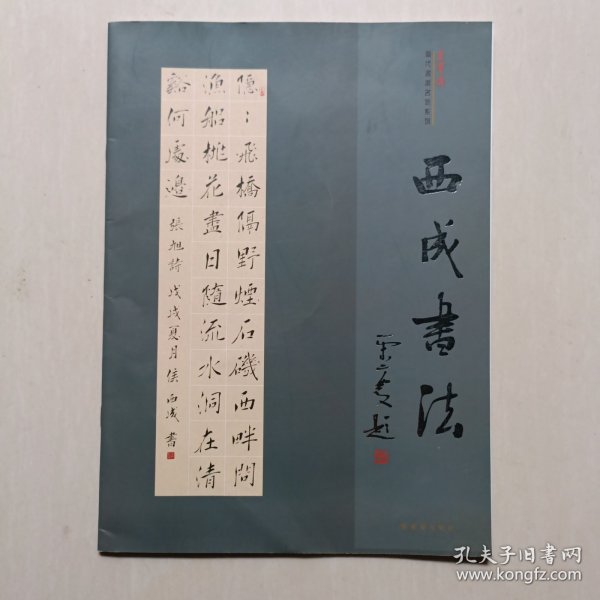 西成書法
題
隱〻飛橋隔野煙石磯西畔問
漁船桃花盡日隨流水洞在清
谿何處邊 張旭詩 戊戌夏月侯西成書
孔夫子旧书网
www.kongfz.com